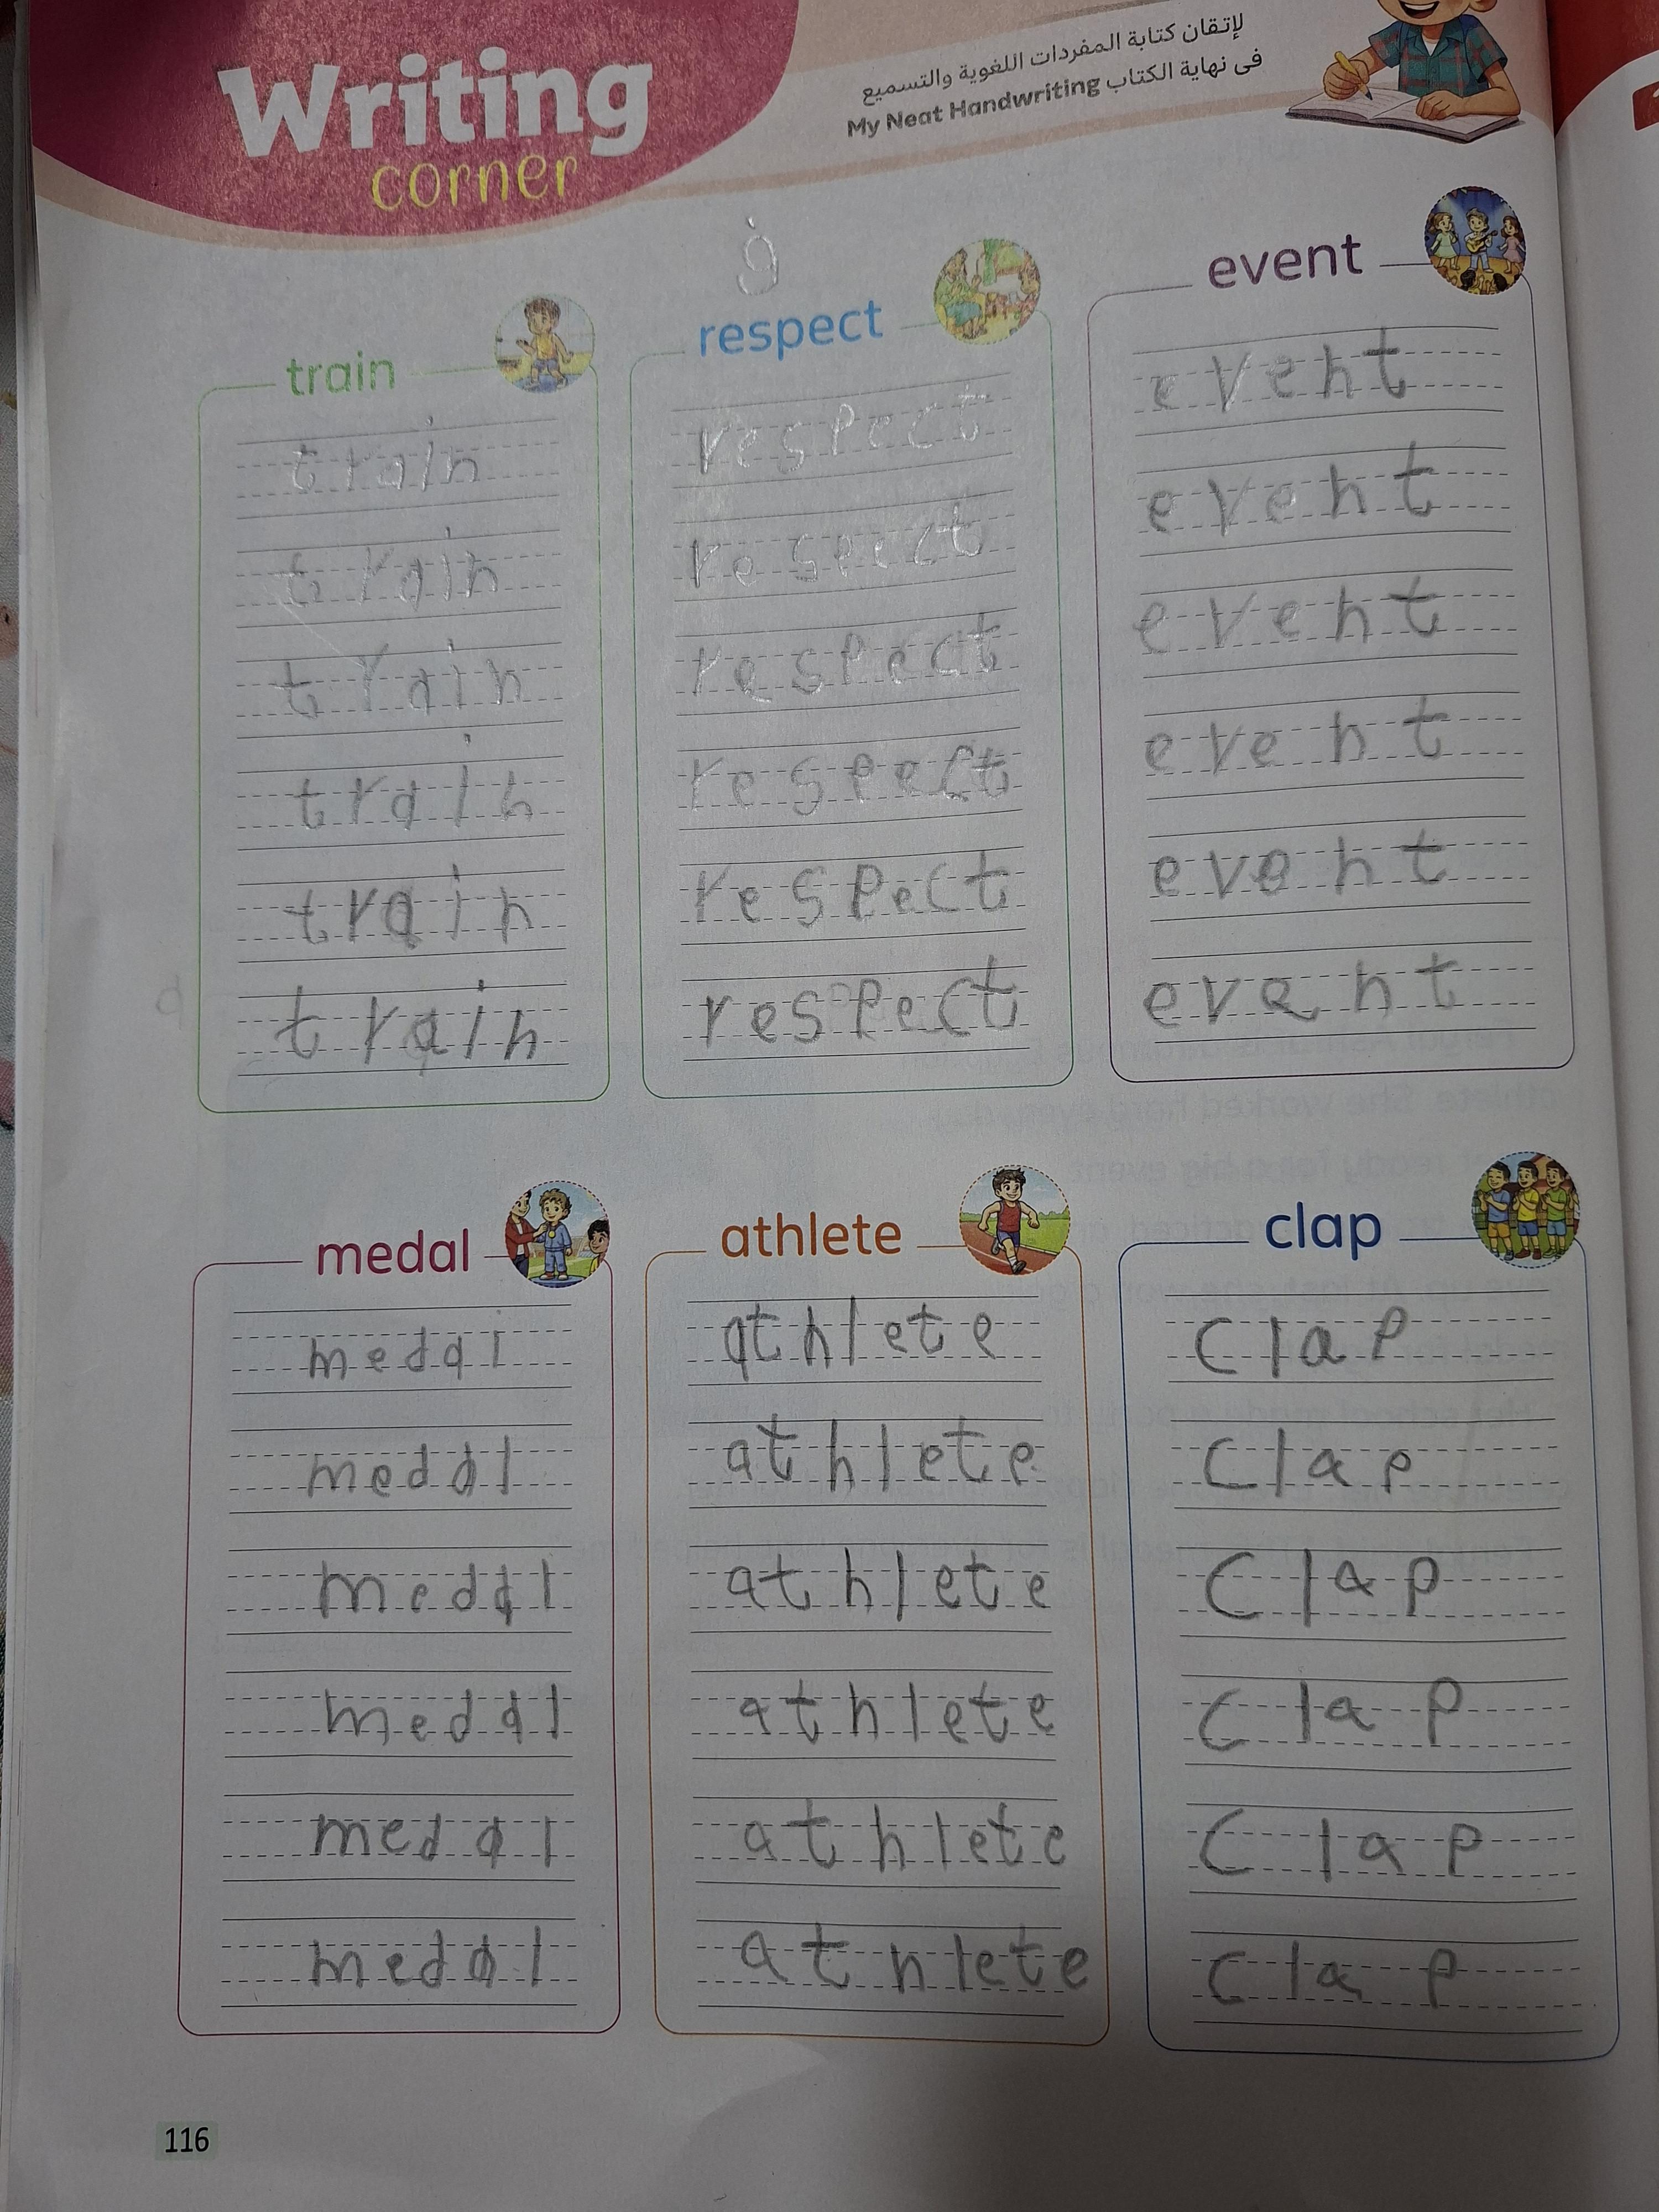 Writing
corner
لإتقان كتابة المفردات اللغوية والتسميع
فى نهاية الكتاب My Neat Handwriting
train
train
train
train
train
train
train
respect
respect
respect
respect
respect
respect
respect
event
event
event
event
event
event
event
medal
medal
medal
medal
medal
medal
medal
athlete
athlete
athlete
athlete
athlete
athlete
athlete
clap
clap
clap
clap
clap
clap
clap
116